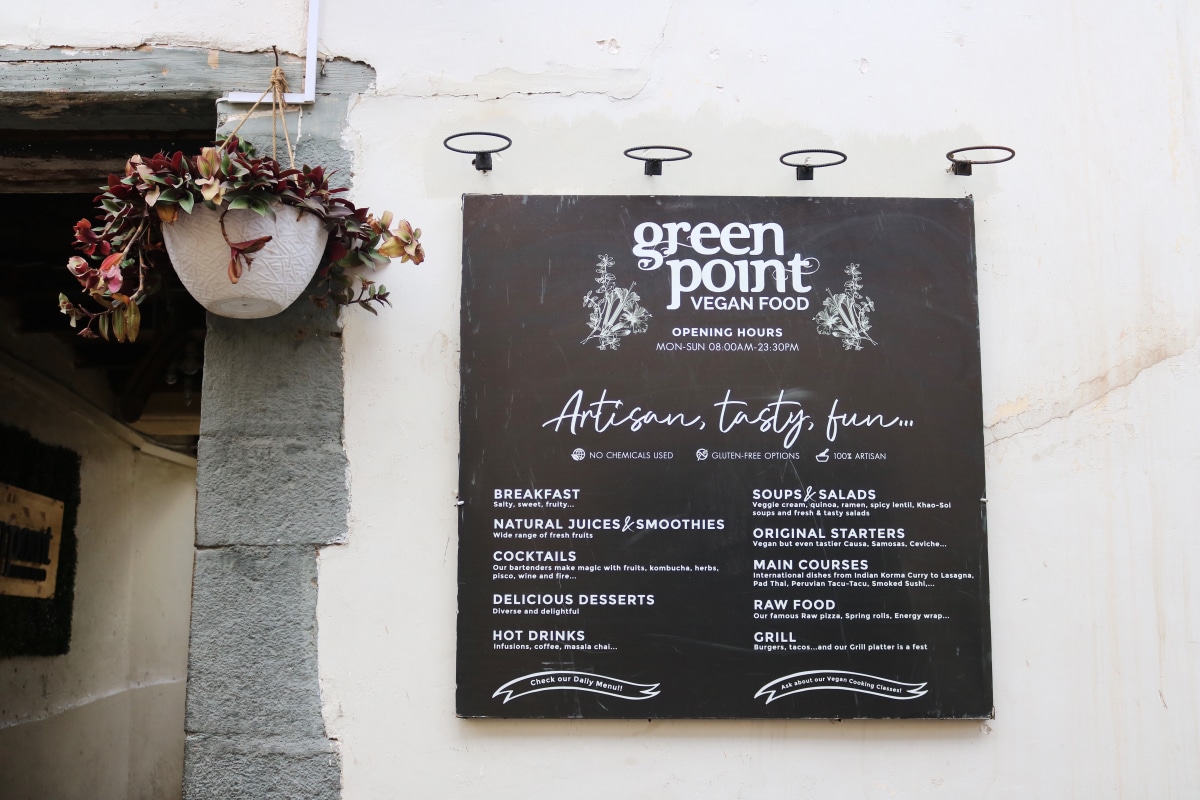 green
point
VEGAN FOOD
OPENING HOURS
MON-SUN 08:00AM-23:30PM
Artisan, tasty, fun...
NO CHEMICALS USED
GLUTEN-FREE OPTIONS
100% ARTISAN
BREAKFAST
Salty, sweet, fruity...
NATURAL JUICES & SMOOTHIES
Wide range of fresh fruits
COCKTAILS
Our bartenders make magic with fruits, kombucha, herbs,
pisco, wine and fire...
DELICIOUS DESSERTS
Diverse and delightful
HOT DRINKS
Infusions, coffee, masala chai...
Check our Daily Menu!!
SOUPS & SALADS
Veggie cream, quinoa, ramen, spicy lentil, Khao-Soi
soups and fresh & tasty salads
ORIGINAL STARTERS
Vegan but even tastier Causa, Samosas, Ceviche...
MAIN COURSES
International dishes from Indian Korma Curry to Lasagna,
Pad Thai, Peruvian Tacu-Tacu, Smoked Sushi,...
RAW FOOD
Our famous Raw pizza, Spring rolls, Energy wrap...
GRILL
Burgers, tacos...and our Grill platter is a fest
Ask about our Vegan Cooking Classes!